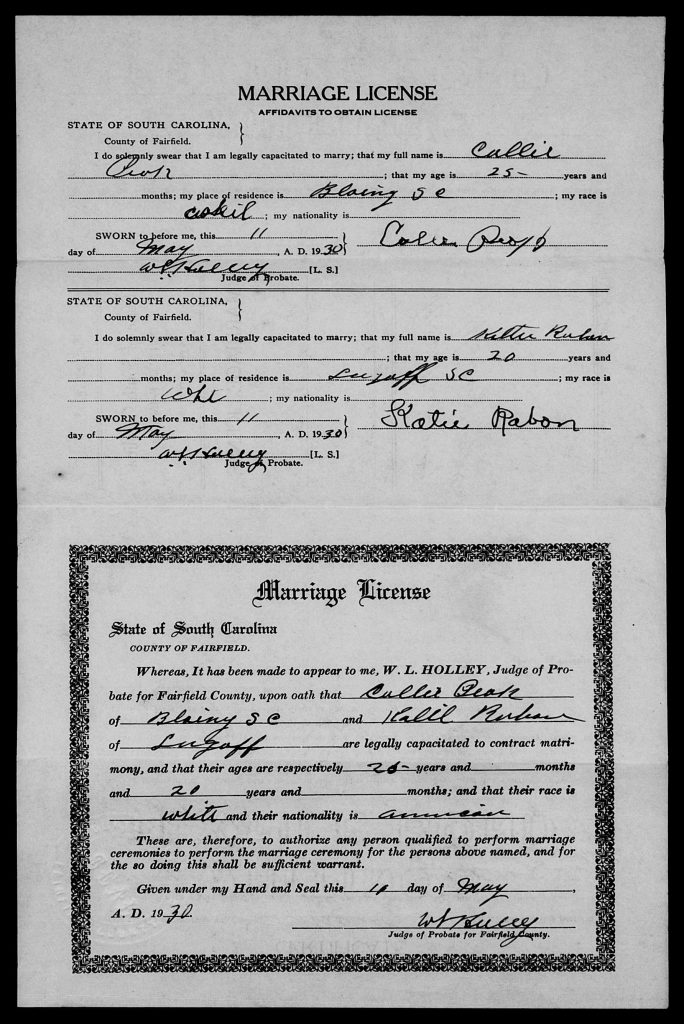 MARRIAGE LICENSE
AFFIDAVITS TO OBTAIN LICENSE
STATE OF SOUTH CAROLINA,
County of Fairfield.
I do solemnly swear that I am legally capacitated to marry; that my full name is Collie
; that my age is 25 years and
months; my place of residence is Blainy S C ; my race is
; my nationality is
SWORN to before me, this 11
day of May , A. D. 1930
[L. S.]
Judge of Probate.
STATE OF SOUTH CAROLINA,
County of Fairfield.
I do solemnly swear that I am legally capacitated to marry; that my full name is Katie Rabon
; that my age is 20 years and
months; my place of residence is Lugoff SC ; my race is
; my nationality is
SWORN to before me, this 11
Katie Rabon
day of May , A. D. 1930
[L. S.]
Judge of Probate.
Marriage License
State of South Carolina
COUNTY OF FAIRFIELD.
Whereas, It has been made to appear to me, W. L. HOLLEY, Judge of Pro-
bate for Fairfield County, upon oath that Collie Peak
of Blainy S C and Rabon
of Lugoff are legally capacitated to contract matri-
mony, and that their ages are respectively 25 years and months
and 20 years and months; and that their race is
white and their nationality is
These are, therefore, to authorize any person qualified to perform marriage
ceremonies to perform the marriage ceremony for the persons above named, and for
the so doing this shall be sufficient warrant.
Given under my Hand and Seal this day of May ,
A. D. 1930
W L Holley
Judge of Probate for Fairfield County.